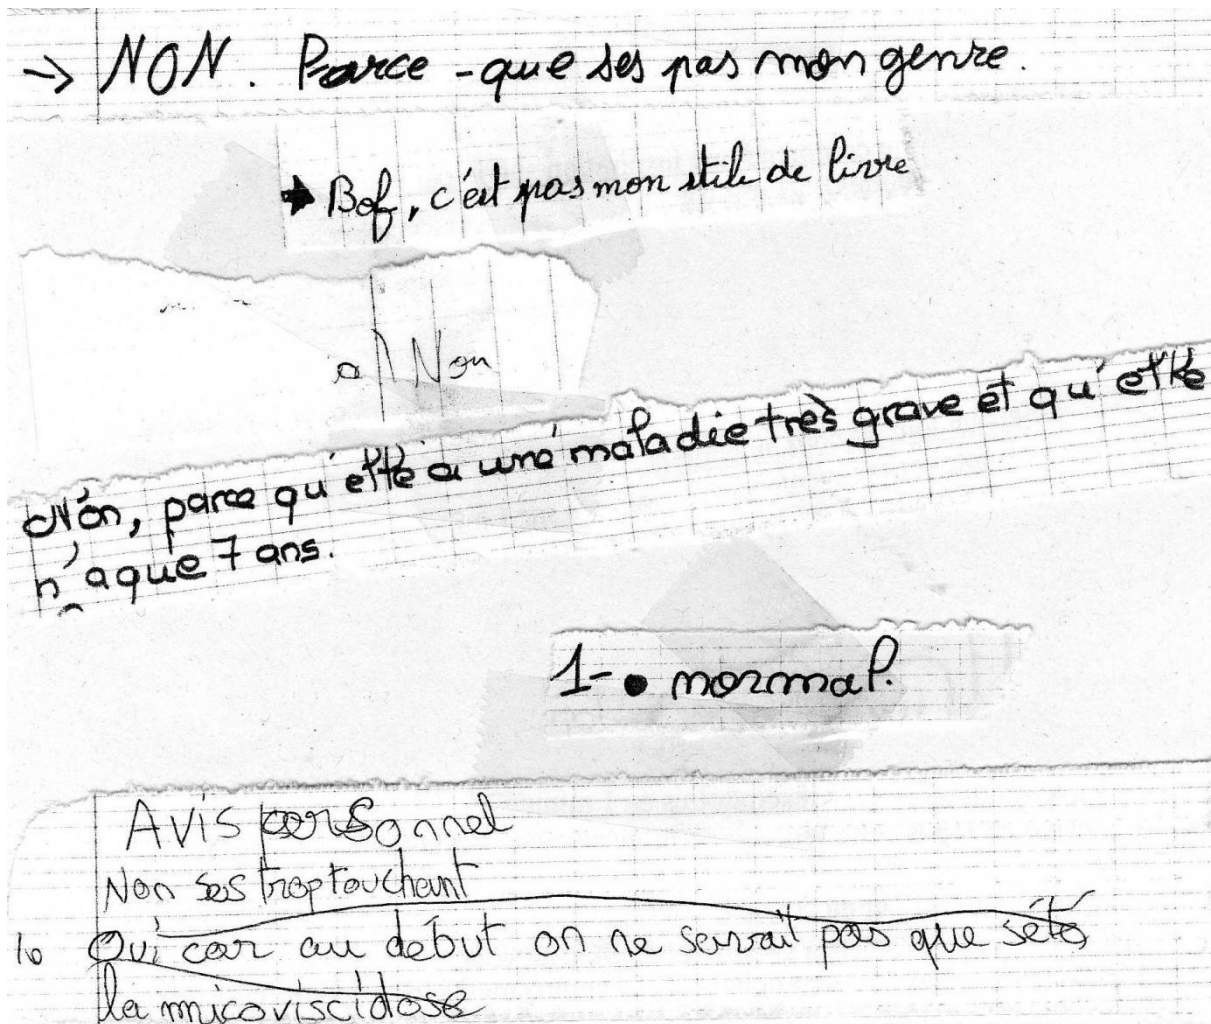 → NON. Parce-que ses pas mon genre.
→ Bof, c'est pas mon stile de livre
a) Non
Non, parce qu'elle a une maladie très grave et qu'elle
n'a que 7 ans.
1- • normal.
Avis personnel
Non ses trop touchant
10 Oui car au début on ne savait pas que sétó
la mucoviscidose